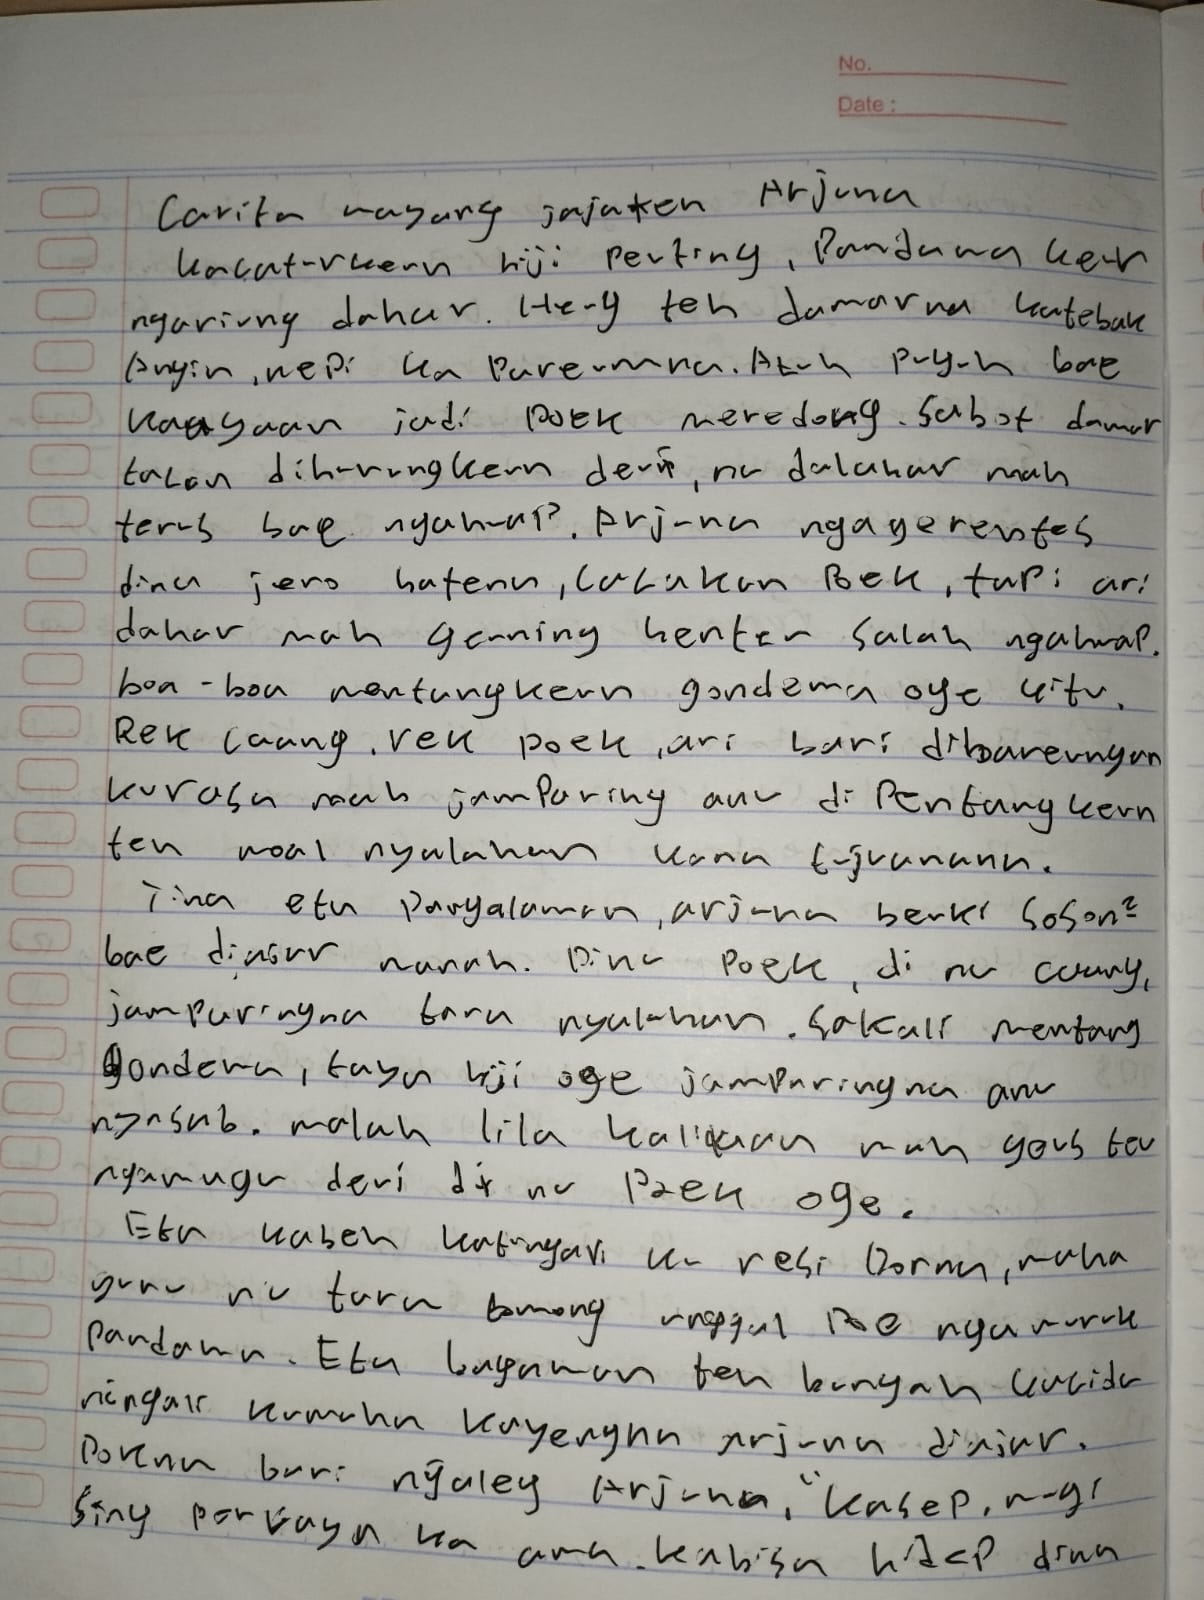 No.
Date :
Carita wayang jajaten Arjuna
Kacaturkeun hiji peuting, Pandawa keur
ngariung dahar. Heug teh damarna katebak
Angin, nepi ka Pareumna. Atuh puguh bae
kaayaan jadi poek meredong. Sabot damar
tacan dihurungkeun deui, nu dalahar mah
terus bae ngahuap. Arjuna ngagerentes
dina jero hatena, cacakan Poek, tapi ari
dahar mah geuning henteu salah ngahuap.
boa-boa mentangkeun gondewa oge kitu.
Rek caang, rek poek, ari bari dibareungan
kurasa mah jamparing anu di Pentangkeun
teh moal nyalahan kana tujuanana.
Tina eta pangalaman, arjuna beuki soson²
bae diajar manah. Dina Poek, di nu caang,
jamparingna tara nyalahan. Sakali mentang
gondewa, taya hiji oge jamparingna anu
nyasab. malah lila kalilaan mah geus teu
ngamugu deui di nu Poek oge.
Eta kabeh katingali ku resi Dorna, maha
guru nu tara bosong unggal Poe ngawuruk
pandawa. Eta bagawan teh bungah kacida
ningali kumaha kayengna Arjuna diajar.
Pokna bari ngaley Arjuna, "Kasep, mugi
Sing percaya ka ama. kabisa hidep dina